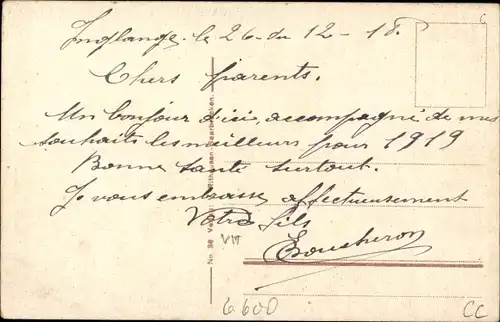 Inglange. le 26 du 12 - 18.
Chers parents.
Un bonjour d'ici, accompagné de mes
souhaits les meilleurs pour 1919
Bonne santé surtout.
Je vous embrasse affectueusement
Votre fils
Boucheron
VII
6600
CC
C
No 36